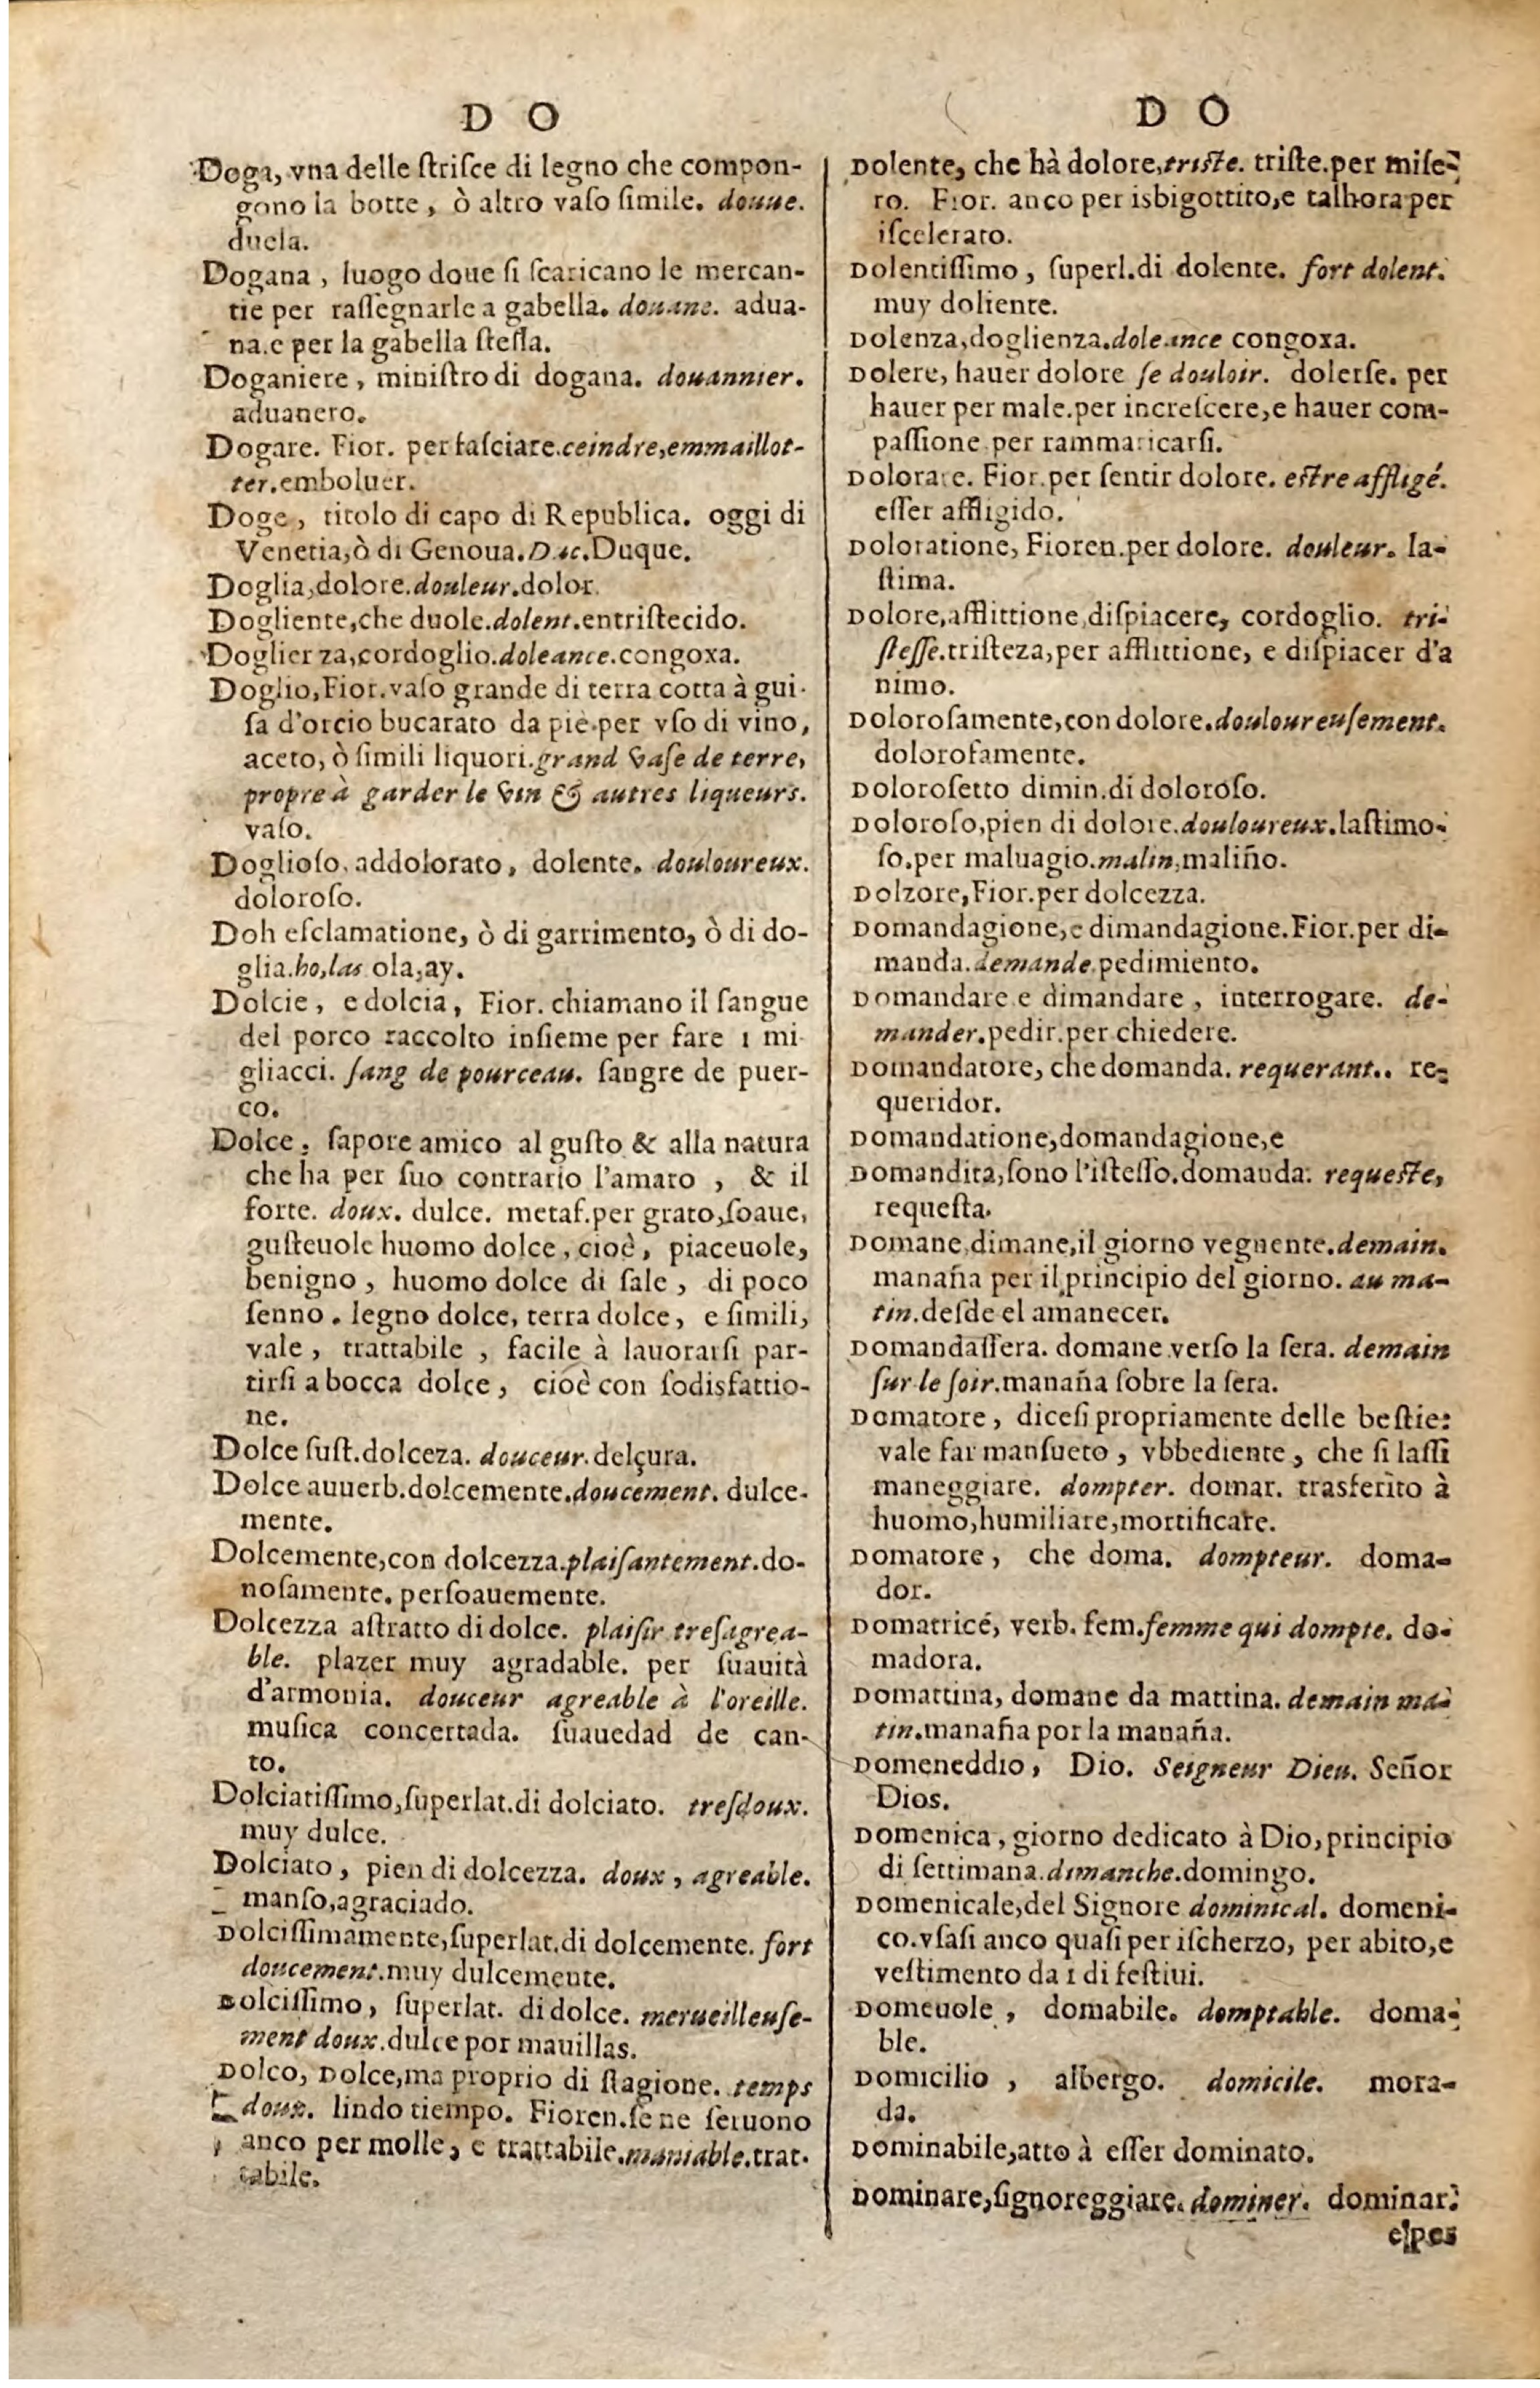 D O
Doga, vna delle ſtriſce di legno che compon-
gono la botte, ò altro vaſo ſimile. douue.
duela.
Dogana, luogo doue ſi ſcaricano le mercan-
tie per raſſegnarle a gabella. douane. adua-
na.e per la gabella ſteſſa.
Doganiere, miniſtro di dogana. douannier.
aduanero.
Dogare. Fior. per faſciare.ceindre,emmaillot-
ter.emboluer.
Doge, titolo di capo di Republica. oggi di
Venetia,ò di Genoua.Duc.Duque.
Doglia,dolore.douleur.dolor.
Dogliente,che duole.dolent.entriſtecido.
Doglienza,cordoglio.doleance.congoxa.
Doglio,Fior.vaſo grande di terra cotta à gui-
ſa d'orcio bucarato da piè.per vſo di vino,
aceto, ò ſimili liquori.grand vaſe de terre,
propre à garder le vin & autres liqueurs.
vaſo.
Doglioſo, addolorato, dolente. douloureux.
doloroſo.
Doh eſclamatione, ò di garrimento, ò di do-
glia.ho,las ola,ay.
Dolcie, e dolcia, Fior. chiamano il ſangue
del porco raccolto inſieme per fare i mi-
gliacci. ſang de pourceau. ſangre de puer-
co.
Dolce, ſapore amico al guſto & alla natura
che ha per ſuo contrario l'amaro, & il
forte. doux. dulce. metaf.per grato,ſoaue,
guſteuole huomo dolce, cioè, piaceuole,
benigno, huomo dolce di ſale, di poco
ſenno. legno dolce, terra dolce, e ſimili,
vale, trattabile, facile à lauorarſi par-
tirſi a bocca dolce, cioè con ſodisfattio-
ne.
Dolce ſuſt.dolceza. douceur.delçura.
Dolce auuerb.dolcemente.doucement. dulce-
mente.
Dolcemente,con dolcezza.plaiſantement.do-
noſamente. perſoauemente.
Dolcezza aſtratto di dolce. plaiſir treſagrea-
ble. plazer muy agradable. per ſuauità
d'armonia. douceur agreable à l'oreille.
muſica concertada. ſuauedad de can-
to.
Dolciatiſſimo,ſuperlat.di dolciato. treſdoux.
muy dulce.
Dolciato, pien di dolcezza. doux, agreable.
manſo,agraciado.
Dolciſſimamente,ſuperlat.di dolcemente. fort
doucement.muy dulcemente.
Dolciſſimo, ſuperlat. di dolce. merueilleuſe-
ment doux.dulce por mauillas.
Dolco, Dolce,ma proprio di ſtagione. temps
doux. lindo tiempo. Fioren.ſe ne ſeruono
anco per molle, e trattabile.maniable.trat-
tabile.
D O
Dolente, che hà dolore,triſte. triſte.per miſe-
ro. Fior. anco per isbigottito,e talhora per
iſcelerato.
Dolentiſſimo, ſuperl.di dolente. fort dolent.
muy doliente.
Dolenza,doglienza.doleance congoxa.
Dolere, hauer dolore ſe douloir. dolerſe. per
hauer per male.per increſcere,e hauer com-
paſſione.per rammaricarſi.
Dolorare. Fior.per ſentir dolore. eſtre affligé.
eſſer affligido.
Doloratione, Fioren.per dolore. douleur. la-
ſtima.
Dolore,afflittione,diſpiacere, cordoglio. tri-
ſteſſe.triſteza,per afflittione, e diſpiacer d'a
nimo.
Doloroſamente,con dolore.douloureuſement.
doloroſamente.
Doloroſetto dimin.di doloroſo.
Doloroſo,pien di dolore.douloureux.laſtimo-
ſo.per maluagio.malin,maliño.
Dolzore,Fior.per dolcezza.
Domandagione,e dimandagione.Fior.per di-
manda.demande.pedimiento.
Domandare e dimandare, interrogare. de-
mander.pedir.per chiedere.
Domandatore, che domanda. requerant.. re-
queridor.
Domandatione,domandagione,e
Domandita,ſono l'iſteſſo.domanda. requeſte,
requeſta.
Domane,dimane,il giorno vegnente.demain.
manaña per il principio del giorno. au ma-
tin.deſde el amanecer.
Domandaſſera. domane verſo la ſera. demain
ſur le ſoir.manaña ſobre la ſera.
Domatore, diceſi propriamente delle beſtie:
vale far manſueto, vbbediente, che ſi laſſi
maneggiare. dompter. domar. trasferito à
huomo,humiliare,mortificare.
Domatore, che doma. dompteur. doma-
dor.
Domatrice, verb. fem.femme qui dompte. do-
madora.
Domattina, domane da mattina. demain ma-
tin.manaña por la manaña.
Domeneddio, Dio. Seigneur Dieu. Señor
Dios.
Domenica, giorno dedicato à Dio,principio
di ſettimana.dimanche.domingo.
Domenicale,del Signore dominical. domeni-
co.vſaſi anco quaſi per iſcherzo, per abito,e
veſtimento da i di feſtiui.
Domeuole, domabile. domptable. doma-
ble.
Domicilio, albergo. domicile. mora-
da.
Dominabile,atto à eſſer dominato.
Dominare,ſignoreggiare. dominer. dominar.
eſpes